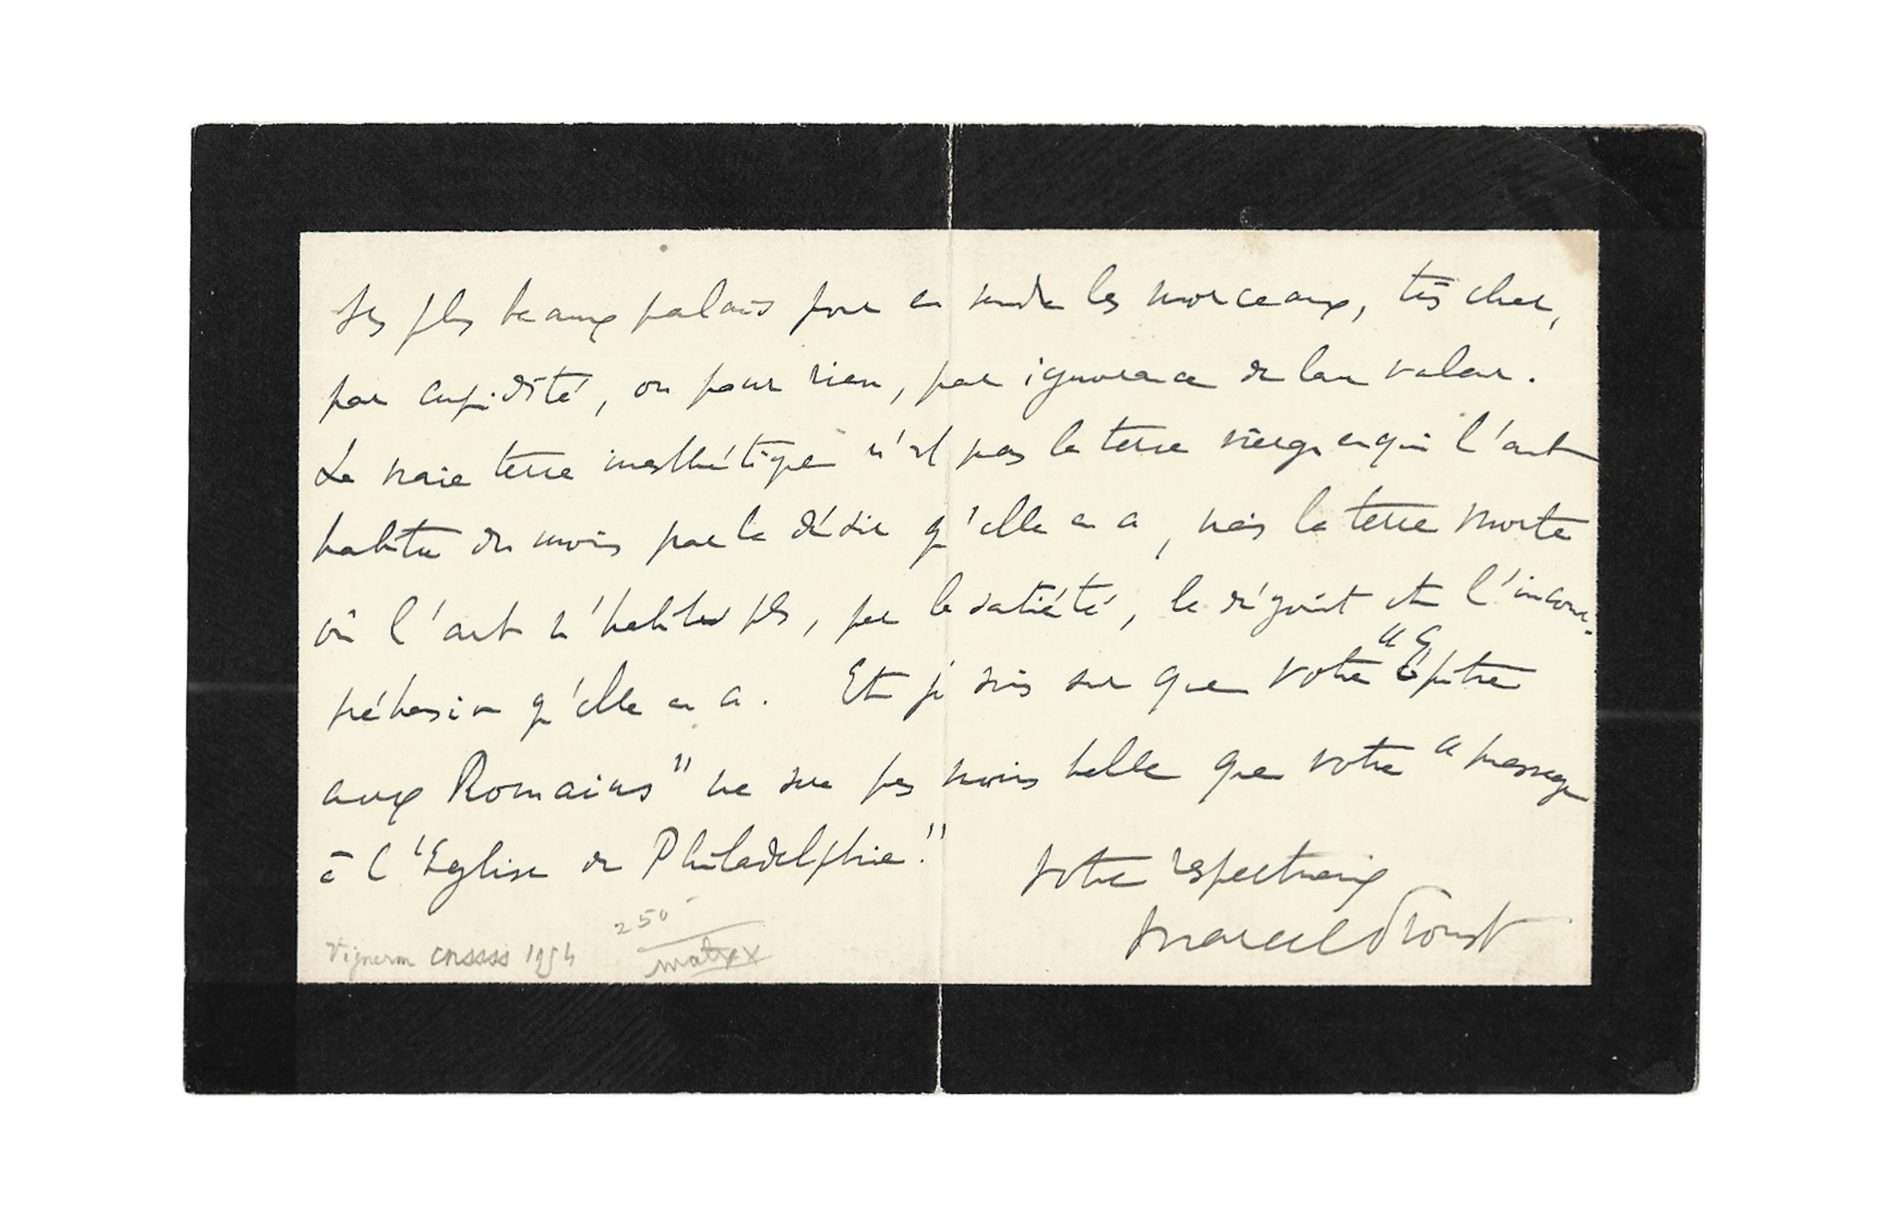 ses plus beaux palais pour en vendre les morceaux, très cher,
par cupidité, ou pour rien, par ignorance de leur valeur.
La vraie terre inesthétique n'est pas la terre vierge en qui l'art
habite du moins par le désir qu'elle en a, mais la terre morte
où l'art n'habite plus, par la satiété, le dégoût et l'incom-
préhension qu'elle en a. Et je suis sur que votre "Epitre
aux Romains" ne sera pas moins belle que votre "message
à l'Eglise de Philadelphie."
Votre respectueux
Marcel Proust
250
Vigneron 1954